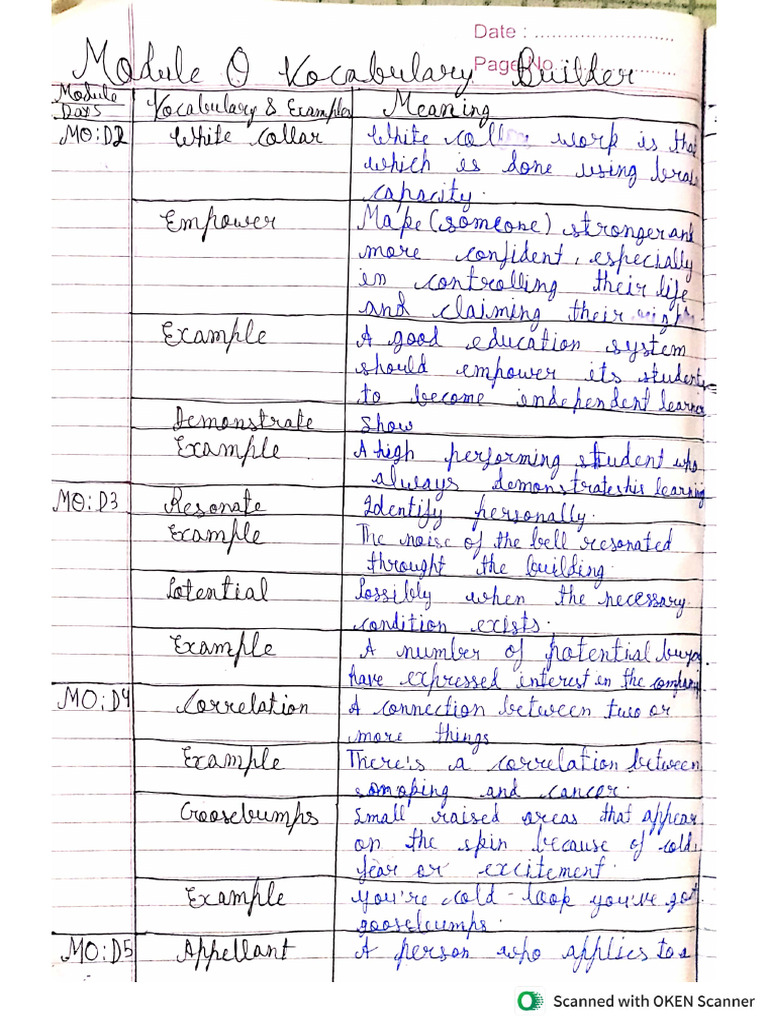 Date : ........................
Page No. ........................
Module 0 Vocabulary Builder
Module Days Vocabulary & Examples Meaning
M0:D2 White Collar White coll work is that
which is done using brain
capacity.
Empower Make (someone) stronger and
more confident, especially
in controlling their life
and claiming their righ
Example A good education system
should empower its students
to become independent learne
Demonstrate Show
Example A high performing student who
always demonstrates his learning
M0:D3 Resonate Identify personally.
Example The noise of the bell resonated
throught the building.
Potential Possibly when the necessary
condition exists.
Example A number of potential buyers
have expressed interest in the company
M0:D4 Correlation A connection between two or
more things
Example There's a correlation between
somoking and cancer.
Goosebumps Small raised areas that appear
on the skin because of cold,
fear or excitement.
Example you're cold - look you've got
goosebumps.
M0:D5 Appellant A person who applies to a
Scanned with OKEN Scanner